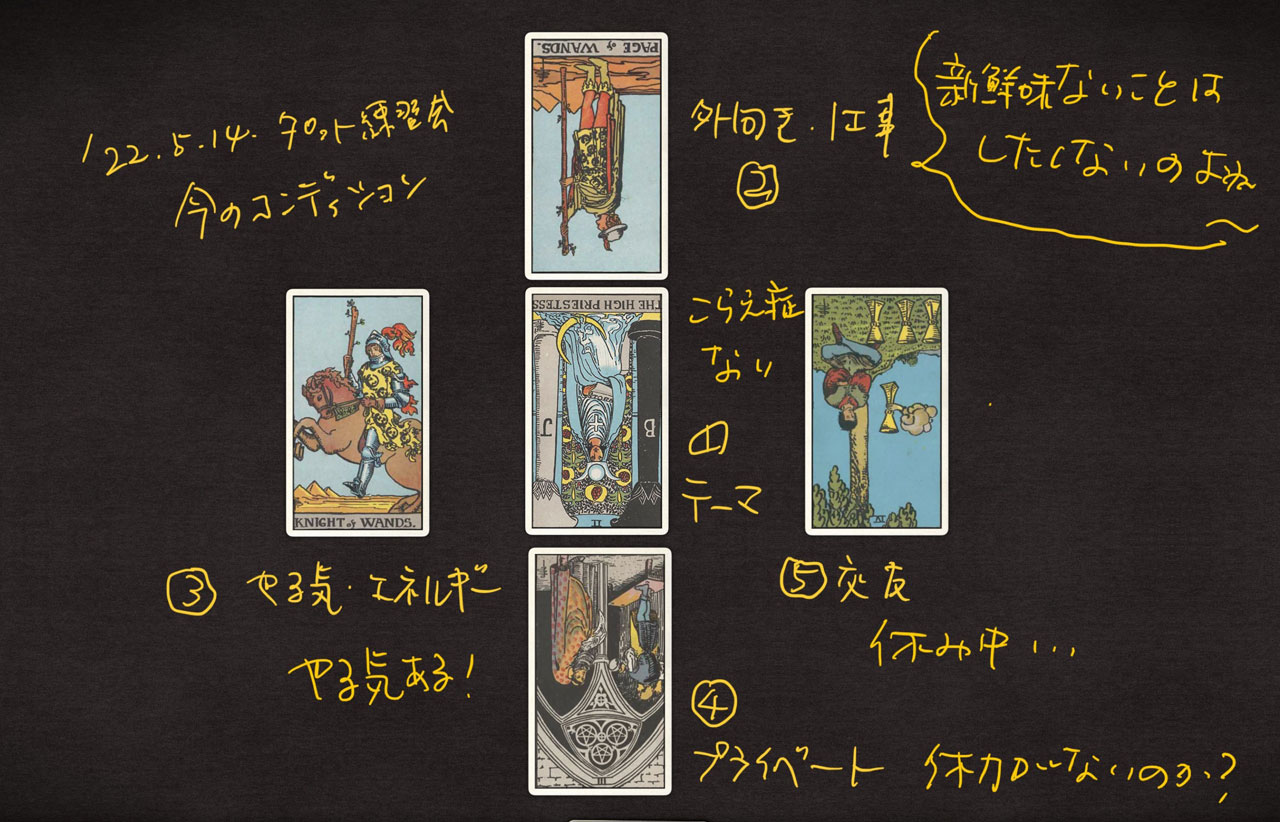 '22.5.14. タロット練習会
今のコンディション
PAGE of WANDS.
外向き・仕事
②
新鮮味ないことは
したくないのよね
〜
KNIGHT of WANDS.
THE HIGH PRIESTESS
B J
II
こらえ症
ない
①
テーマ
IV
③ やる気・エネルギー
やる気ある!
⑤ 交友
休み中...
III
④
プライベート 協力しないのか?